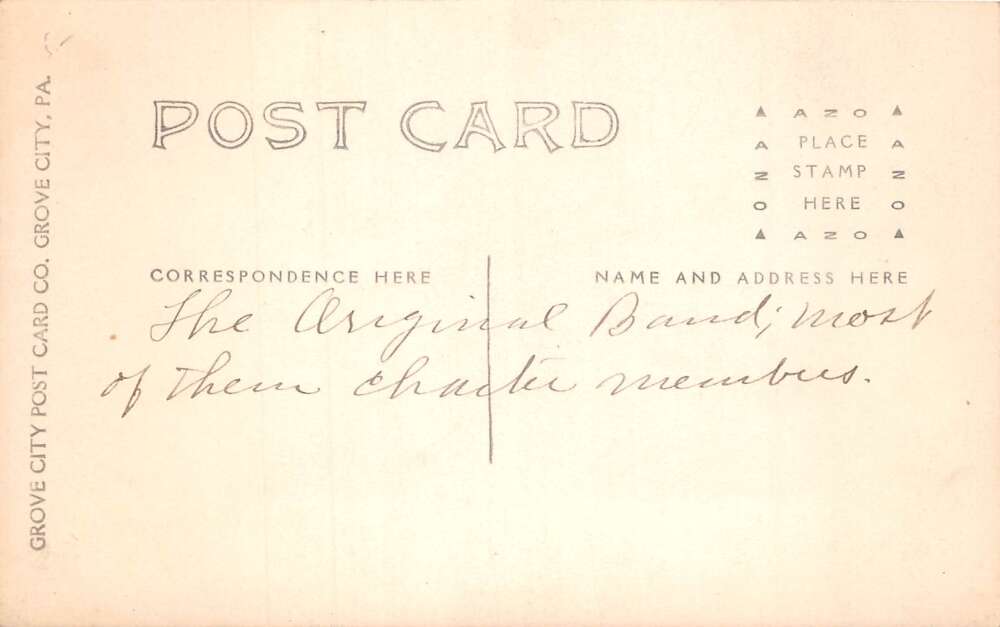 GROVE CITY POST CARD CO. GROVE CITY, PA.
POST CARD
AZO
PLACE
STAMP
HERE
AZO
AZO
AZO
CORRESPONDENCE HERE
NAME AND ADDRESS HERE
The Original Band; most
of them charter members.